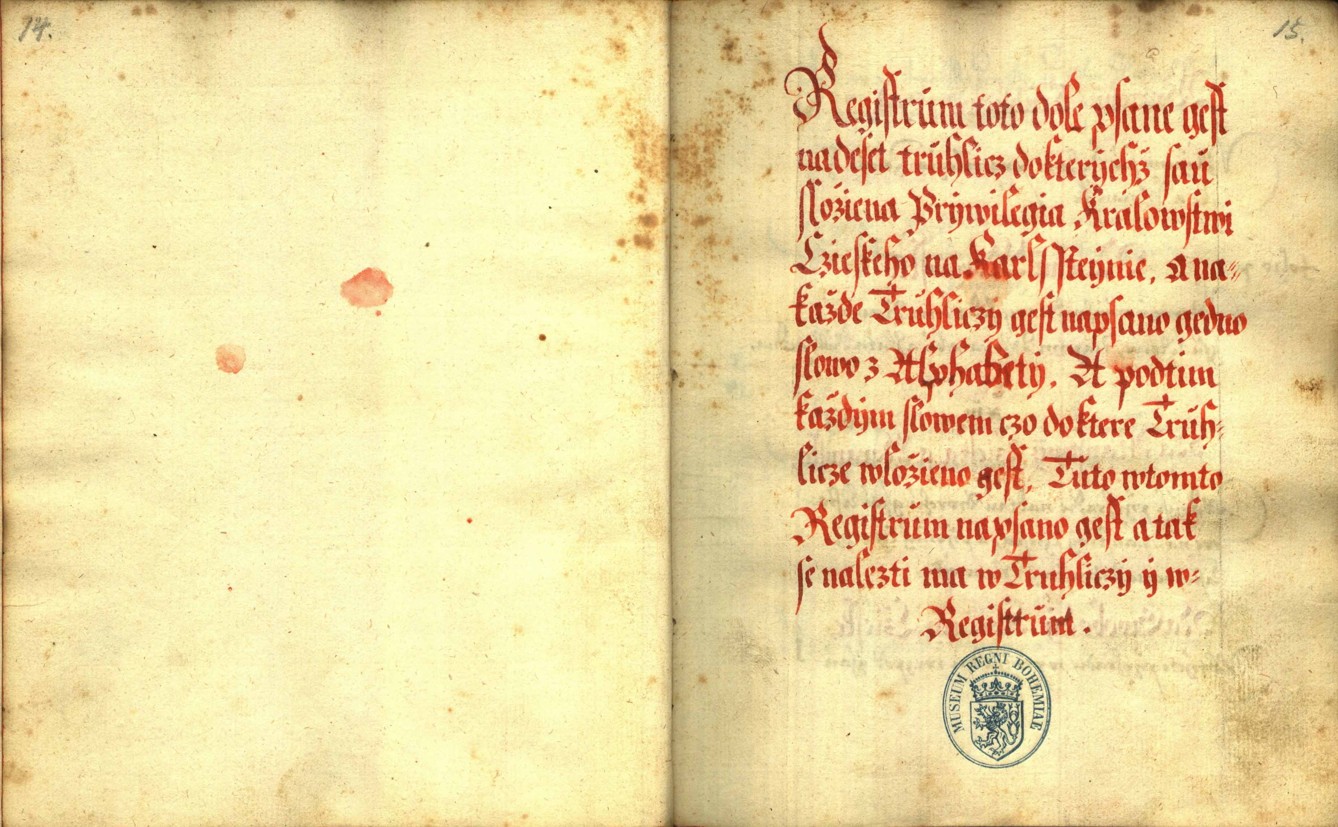 14.
15.
Registrum toto dole psane gest
na deset truhlicz do kterychž sau
složiena Prywilegia Kralowstwi
Czieskeho na Karlssteynie, a na-
každe Truhliczy gest napsano gedno
slowo z Alphabety. A pod tim
každym slowem czo do ktere Truh-
licze wložieno gest, Tuto w tomto
Registrum napsano gest a tak
se nalezti ma w Truhliczy y w-
Registrum.
MUSEUM REGNI BOHEMIAE